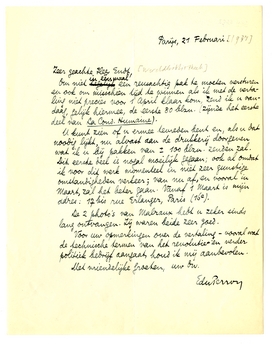 Parijs, 21 Februari (1934)
Zeer geachte Heer Eng, (Wereldbibliotheek)
Om niet in eenmaal een reusachtig pak te moeten versturen
en ook om misschien tijd te winnen als ik met de verta-
ling niet precies voor 1 April klaar kom, zend ik u van-
daag, gelijk hiermee, de eerste 80 blzn. (zijnde het eerste
deel van La Cond. Humaine).
U kunt zien of u ermee tevreden bent en, als dat
noodig lijkt, nu alvast aan de drukkerij doorgeven
wat ik u bij pakken van ± 100 blzn. zenden zal.
Dit eerste deel is nogal moeilijk gegaan; ook al omdat
ik voor dit werk momenteel in niet zeer gunstige
omstandigheden verkeer; maar nu af, en vooral in
Maart, zal het beter gaan. Vanaf 1 Maart is mijn
adres: 17 bis rue Erlanger, Parijs (16e).
De 2 photo's van Malraux hebt u zeker sinds
lang ontvangen. Zij waren beide zeer goed.
Voor uw opmerkingen over de vertaling - vooral wat
de technische termen van het revolutie- en verder
politiek bedrijf aangaat houd ik mij aanbevolen.
Met vriendelijke groeten, uw dw.
EduPerron